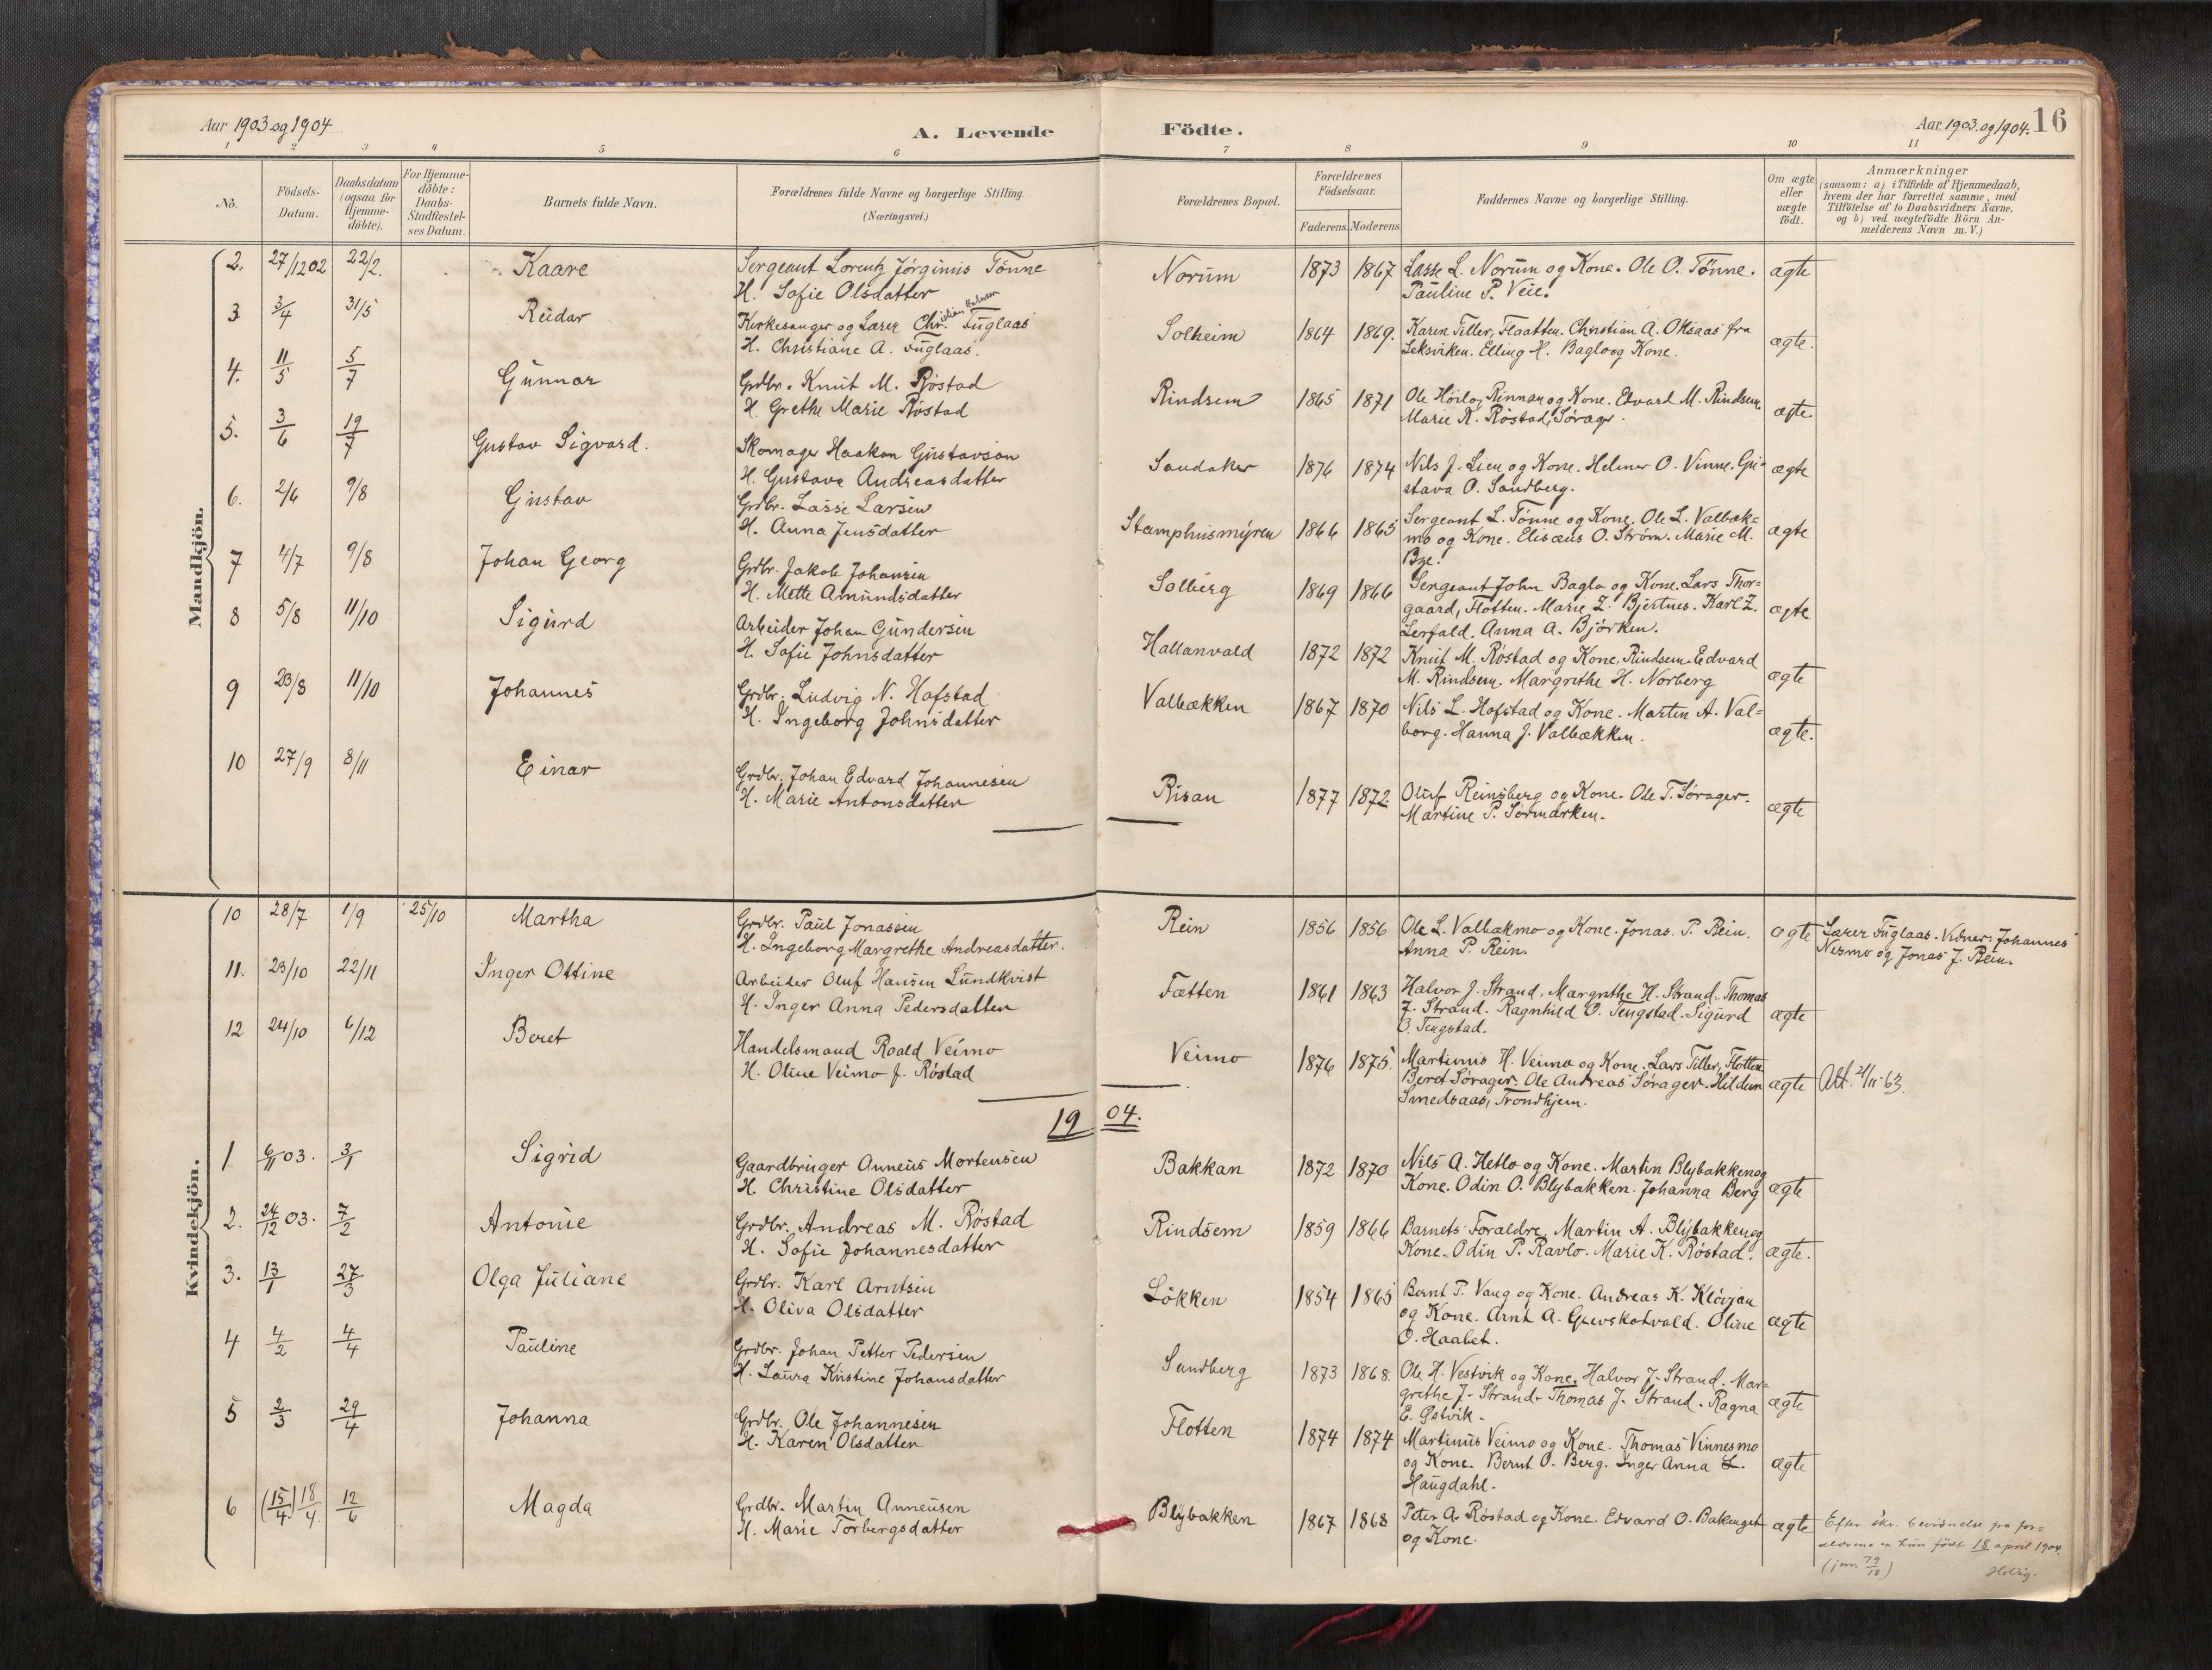 Aar 1903 og 1904
A. Levende Födte.
Aar 1903 og 1904. 16
1 2 3 4 5 6 7 8 9 10 11
No.
Födsels-
Datum.
Daabsdatum
(ogsaa for
Hjemme-
döbte).
For Hjemme-
döbte:
Daabs-
Stadfæstel-
ses Datum.
Barnets fulde Navn.
Forældrenes fulde Navne og borgerlige Stilling.
(Næringsvei.)
Forældrenes Bopæl.
Forældrenes
Födselsaar.
Faderens. Moderens.
Faddernes Navne og borgerlige Stilling.
Om ægte
eller
uægte
födt.
Anmærkninger
(saasom: a) i Tilfælde af Hjemmedaab,
hvem der har forrettet samme, med
Tilföielse af to Daabsvidners Navne,
og b) ved uægtefödte Börn An-
melderens Navn m. V.)
Mandkjön.
2. 27/12 02 22/2. Kaare Sergeant Lorentz Jørginus Tønne Norum 1873 1867 Lasse L. Norum og Kone. Ole O. Tønne. ægte
H. Sofie Olsdatter Pauline P. Veie.
3 3/4 31/5 Reidar Kirkesanger og Lærer Chr. Fuglaas Solheim 1864 1869. Karen Tiller, Flaatten. Christian A. fra ægte.
H. Christiane A. Fuglaas. Leksviken. Elling H. Baglo og Kone.
4. 11/5 5/7 Gunnar Grdbr. Knut M. Røstad Rindsem 1865 1871 Ole Rinnan og Kone. Edvard M. Rindsem. ægte.
H. Grethe Marie Røstad Marie K. Røstad, Sørager.
5. 3/6 19/7 Gustav Sigvard. Skomager Haakon Gustavson Sandaker 1876 1874 Nils J. Lien og Kone. Helmer O. Vinne. Gu- ægte
H. Gustava Andreasdatter stava O. Sandberg.
6. 2/6 9/8 Gustav Grdbr. Lasse Larsen Stamphusmyren 1866 1865 Sergeant L. Tønne og Kone. Ole L. Valbæk= ægte
H. Anna Jensdatter mo og Kone. Elisæus O. Strøm. Marie M.
Bye.
7 4/7 9/8 Johan Georg Grdbr. Jakob Johansen Solberg 1869 1866 Sergeant John Baglo og Kone. Lars Thor= ægte
H. Mette Amundsdatter gaard, Flotten. Marie Z. Bjertnes. Karl Z.
Lerfald. Anna A. Bjørken.
8 5/8 11/10 Sigurd Arbeider Johan Gundersen Hallanvald 1872 1872 Knut M. Røstad og Kone, Rindsem. Edvard ægte
H. Sofie Johnsdatter M. Rindsem. Margrethe H. Norberg
9 23/8 11/10 Johannes Grdbr. Ludvig N. Hofstad Valbækken 1867 1870 Nils L. Hofstad og Kone. Marten A. Val= ægte.
H. Ingeborg Johnsdatter borg. Hanna J. Valbækken.
10 27/9 8/11 Einar Grdbr. Johan Edvard Johannesen Risan 1877 1872. Oluf Reinsberg og Kone. Ole T. Sørager. ægte
H. Marie Antonsdatter Martine P. Sørmarken.
Kvindekjön.
10 28/7 1/9 25/10 Martha Grdbr. Paul Jonassen Rein 1856 1856 Ole L. Valbækmo og Kone. Jonas P. Rein. ægte Lærer Fuglaas. Vidner: Johannes
H. Ingeborg Margrethe Andreasdatter. Anna P. Rein. Nesmo og Jonas J. Rein.
11. 23/10 22/11 Inger Ottine Arbeider Oluf Hansen Lundkvist Fætten 1861 1863 Halvor J. Strand. Margrethe H. Strand. Thomas ægte
H. Inger Anna Pedersdatter J. Strand. Ragnhild O. Tengstad. Sigurd
O. Tengstad.
12 24/10 6/12 Beret Handelsmand Roald Veimo Veimo 1876 1875. Martinus H. Veimo og Kone. Lars Tiller, Flotten. ægte Att. 21/11-63.
H. Oline Veimo f. Røstad Beret Sørager. Ole Andreas Sørager. Hildur
Smedsaas, Trondhjem.
1904.
1 6/11 03. 3/1 Sigrid Gaardbruger Anneus Mortensen Bakkan 1872 1870 Nils A. Hetlo og Kone. Martin Blybakken og ægte
H. Christine Olsdatter Kone. Odin O. Blybakken. Johanna Berg
2. 24/12 03. 7/2 Antonie Grdbr. Andreas M. Røstad Rindsem 1859 1866 Barnets Forældre, Martin A. Blybakken og ægte.
H. Sofie Johannesdatter Kone. Odin P. Ravlo. Marie K. Røstad.
3. 13/1 27/3 Olga Juliane Grdbr. Karl Arntsen Løkken 1854 1865 Bernt P. Vang og Kone. Andreas K. Kløvjan ægte
H. Oliva Olsdatter og Kone. Arnt A. Grevskotvald. Oline
O. Haabet.
4 4/2 4/4 Pauline Grdbr. Johan Petter Pedersen Sandberg 1873 1868. Ole H. Vestvik og Kone. Halvor J. Strand. Mar= ægte
H. Laura Kristine Johansdatter grethe J. Strand. Thomas J. Strand. Ragna
E. Østvik.
5 2/3 29/4 Johanna Grdbr. Ole Johannesen Flotten 1874 1874 Martinus Veimo og Kone. Thomas Vinnesmo ægte
H. Karen Olsdatter og Kone. Bernt O. Berg. Inger Anna L.
Haugdahl.
6 (15/4) 18/4. 12/6 Magda Grdbr. Martin Anneusen Blybakken 1867 1868 Peter A. Røstad og Kone. Edvard O. Bakenget ægte Efter skr. bevidnelse fra for=
H. Marie Torbergsdatter og Kone. ældrene er hun født 18 april 1904.